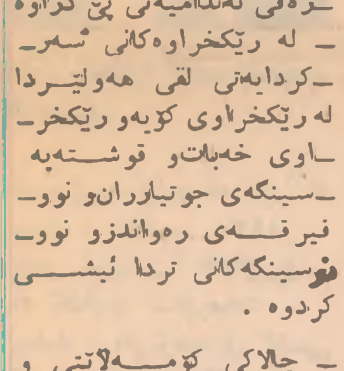 ـرەفی ئەندامیەتی پێ کراوە
ـ لە رێکخراوەکانی سەرـ
ـکردایەتی لقی هەولێـردا
لە رێکخراوی کۆیەو رێکخرـ
ـاوی خەبات‌و قوشـتەپە
ـسینگەی جوتیاران‌و نوو‌ـ
فیرقـەی رەواندزو نوو‌ـ
سینگەکانی تردا ئیشـی
کردوە .
ـ چالاکی کۆمـەلایتی و